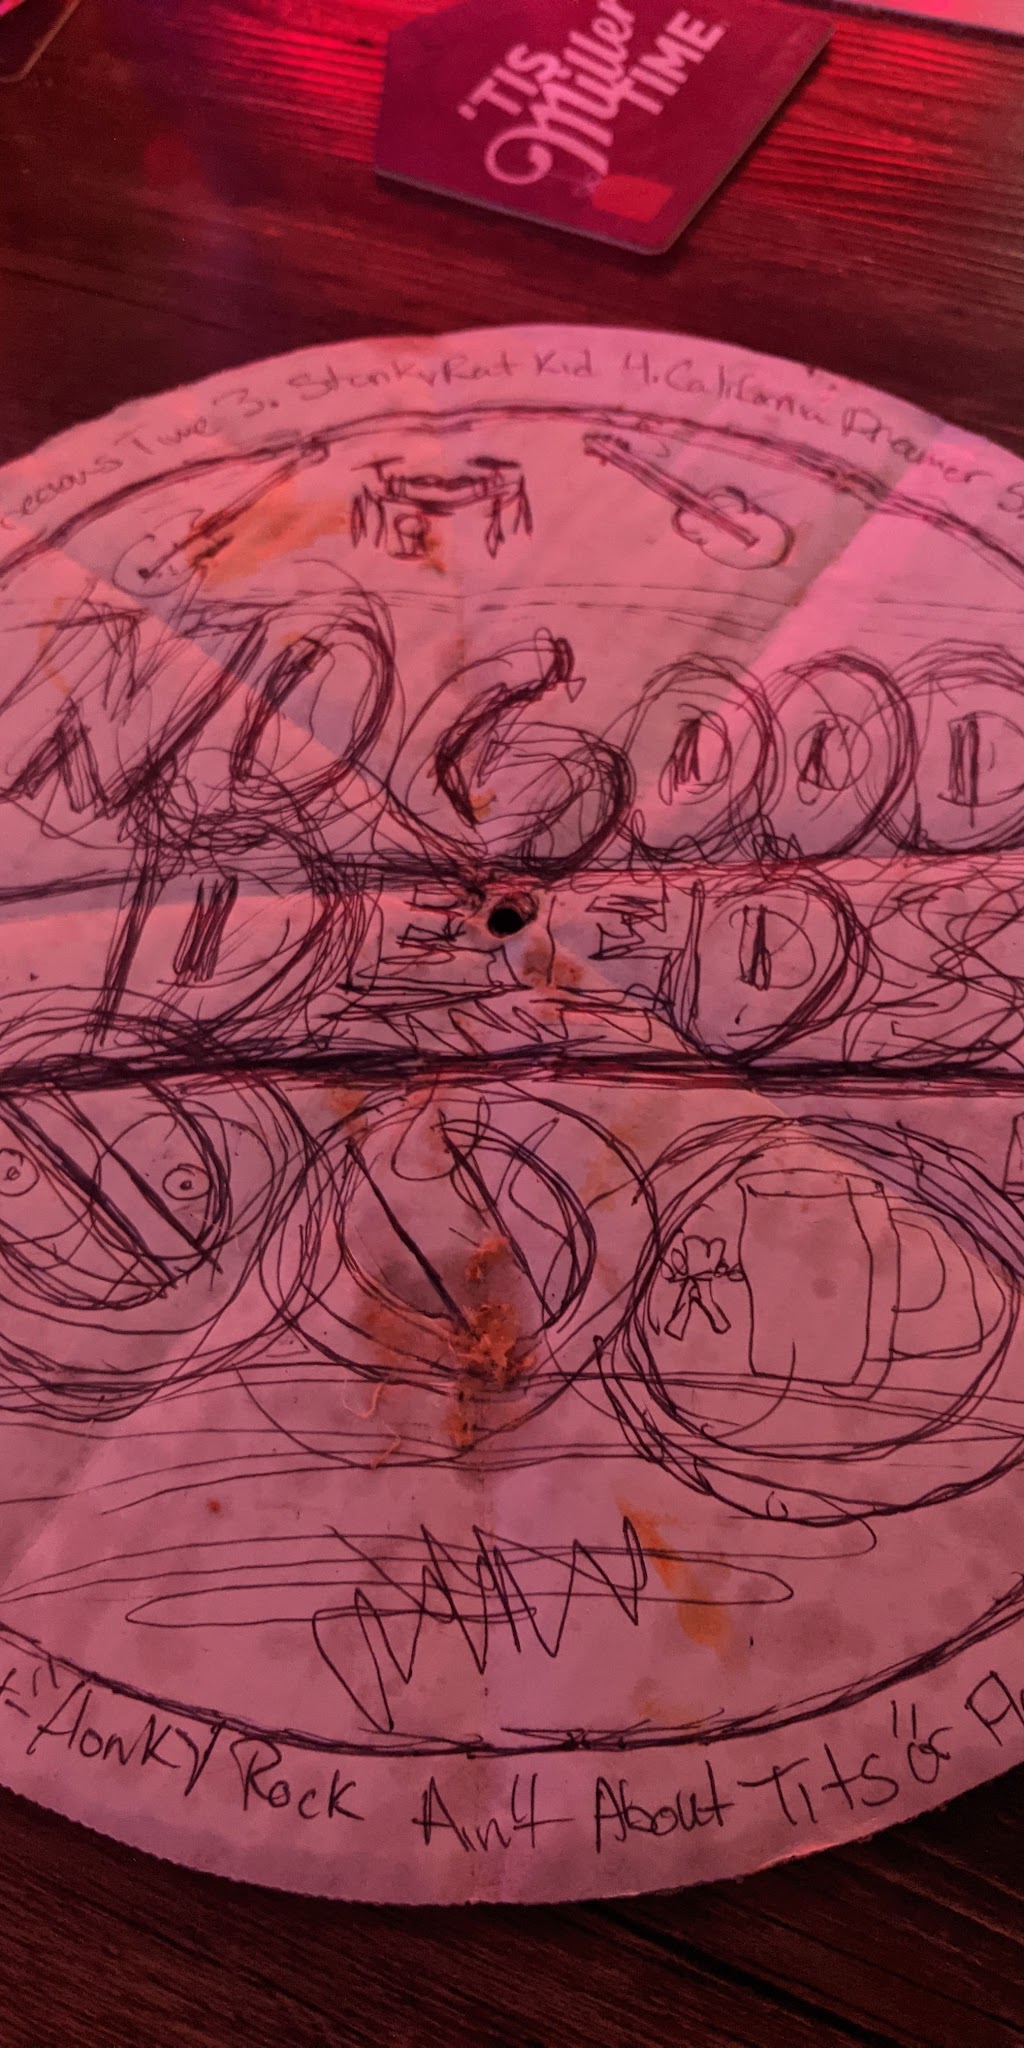 'TIS
Miller
TIME
Time 3. Stanky Rat Kid 4. California Dreamer 5.
NO GOOD
DEEDS
"Honky Rock Ain't About Tits" or